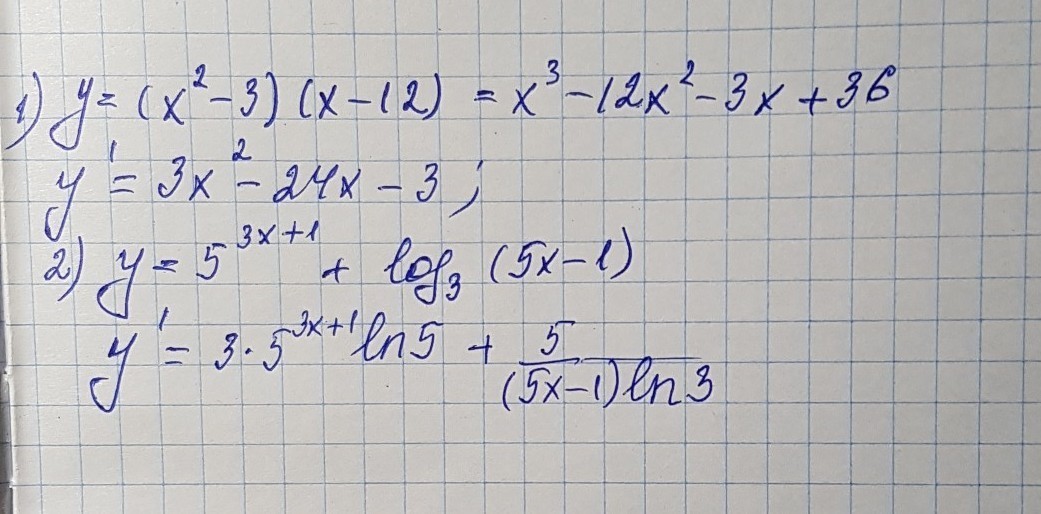 1) y = (x² – 3) (x – 12) = x³ – 12x² – 3x + 36
y' = 3x² – 24x – 3 ;
2) y = 5^(3x+1) + log₃ (5x – 1)
y' = 3 · 5^(3x+1) ln 5 + 5/((5x – 1) ln 3)